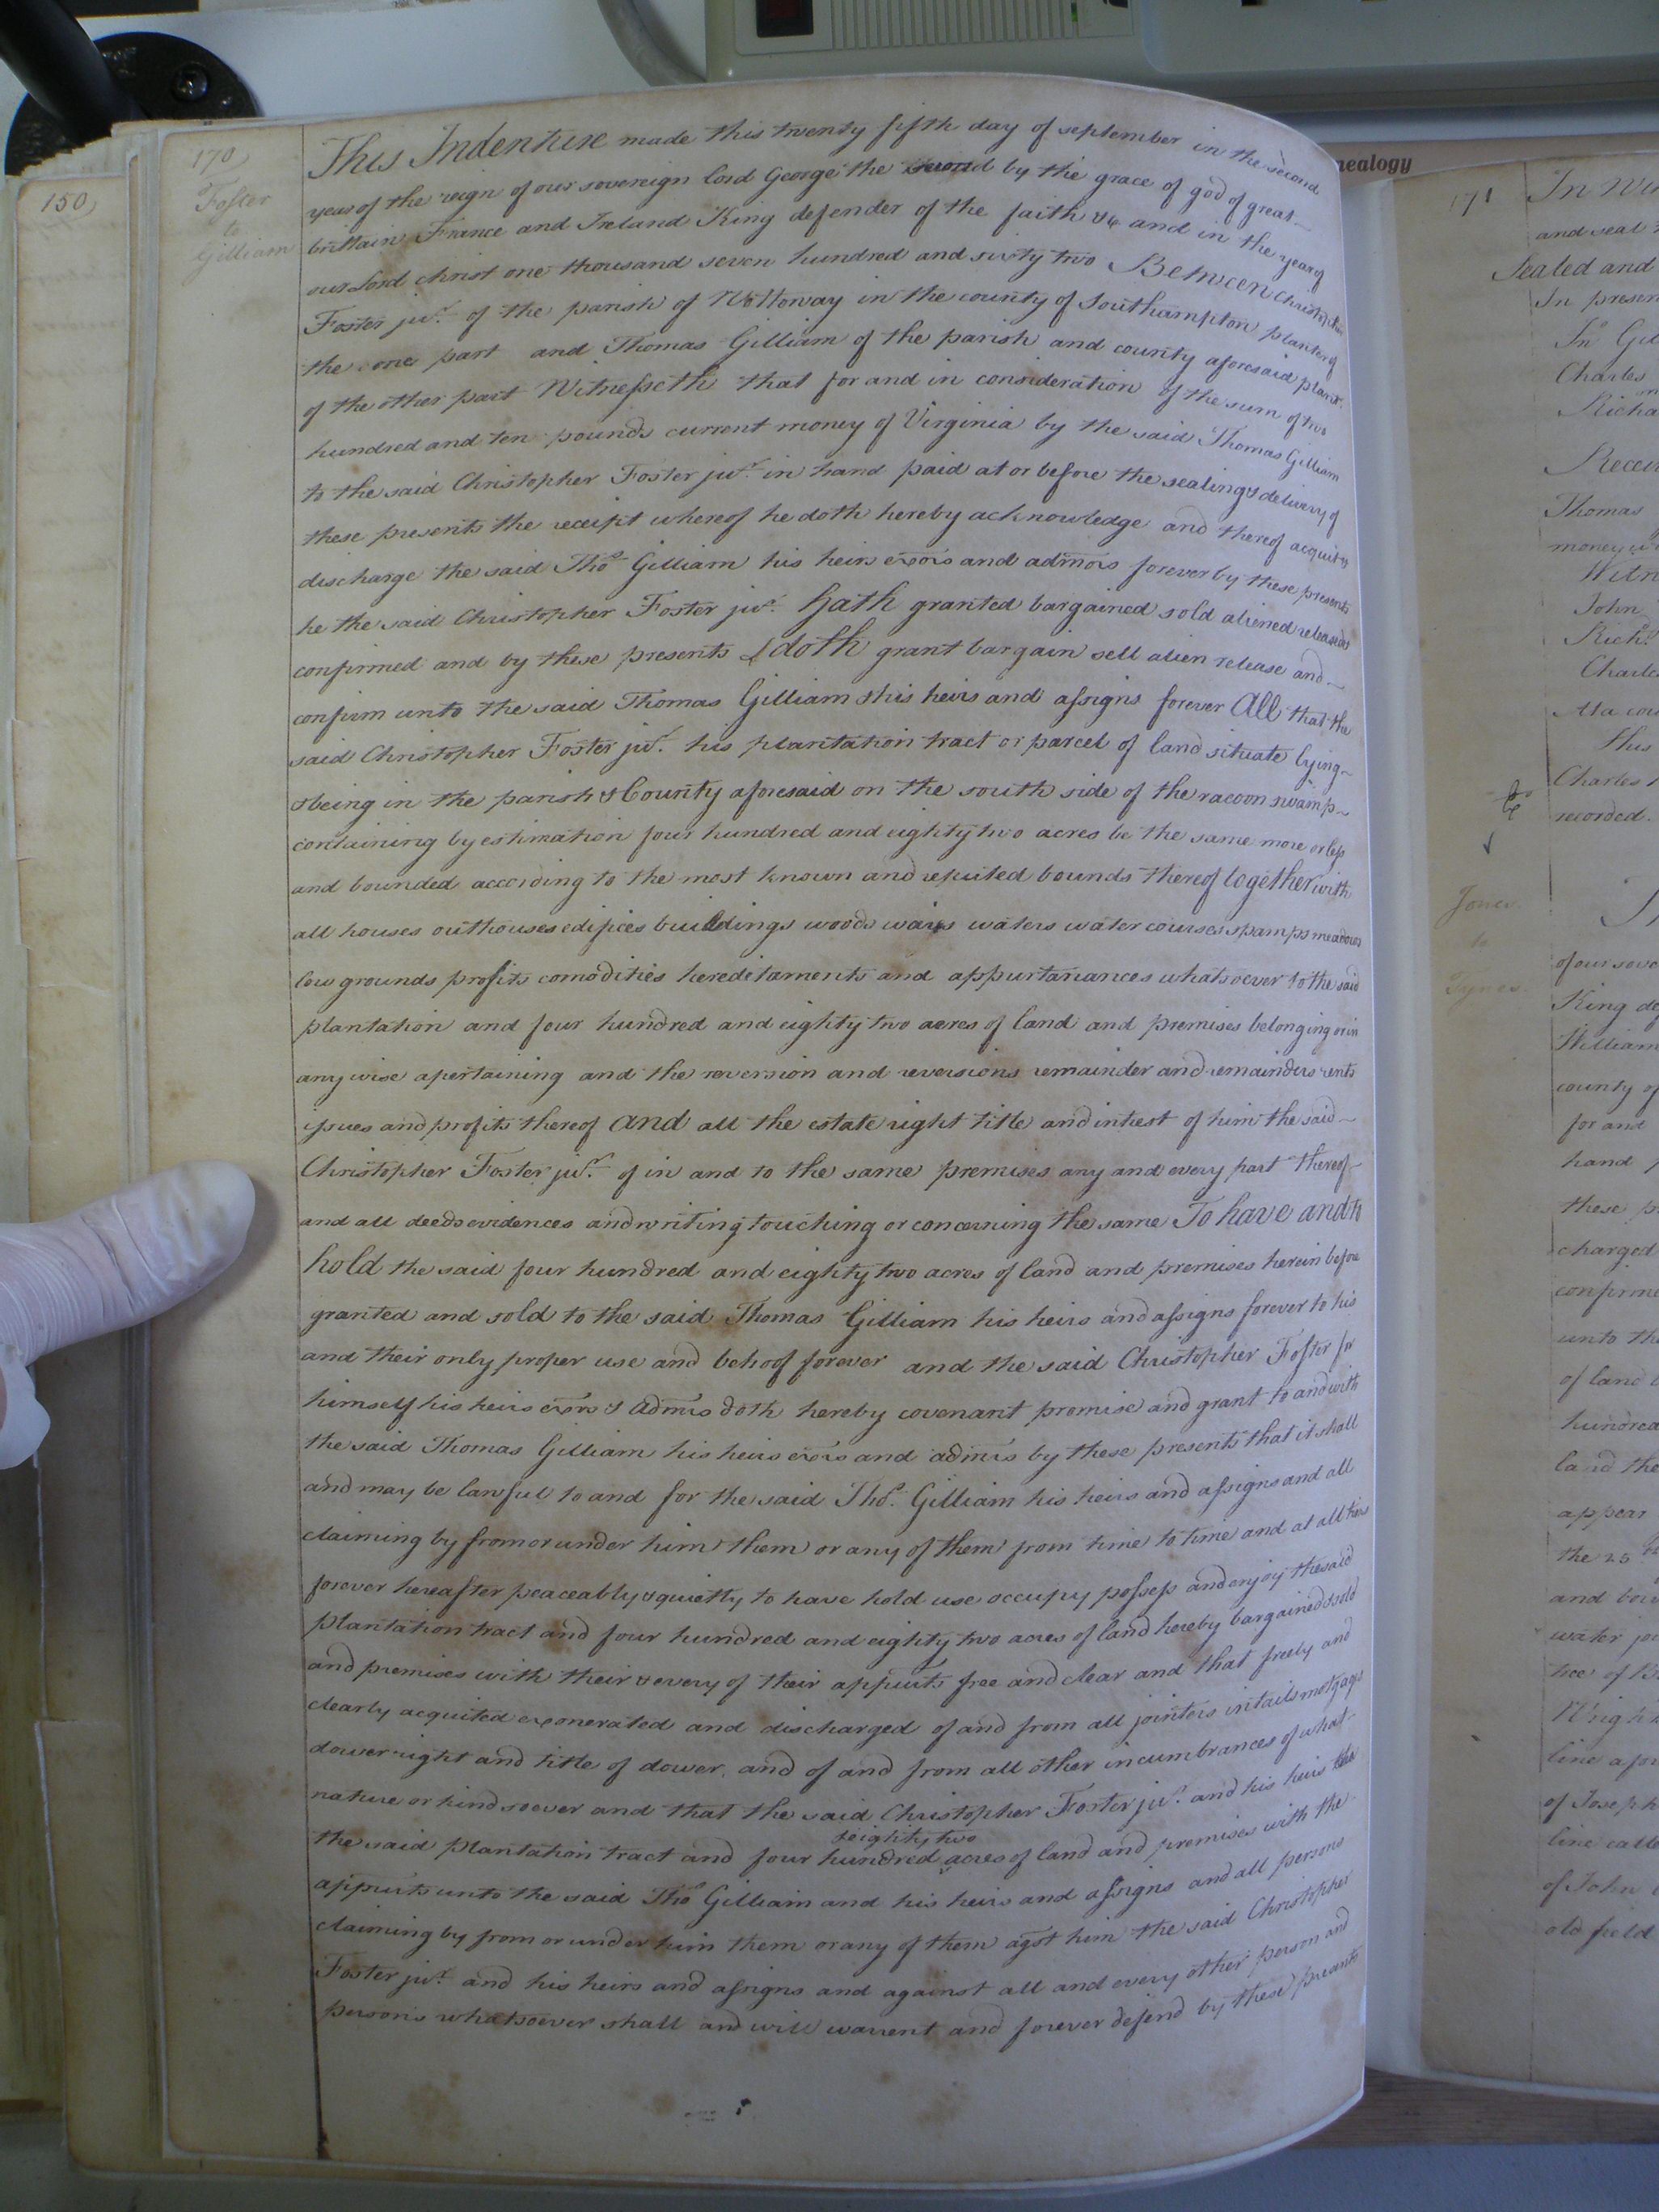 150
170
Foster
to
Gilliam
This Indenture made this twenty fifth day of september in the second
year of the reign of our sovereign lord George the second by the grace of god of great
brittain France and Ireland King defender of the faith &c and in the year of
our Lord christ one thousand seven hundred and sixty two Between Christopher
Foster jur. of the parish of Nottoway in the county of Southampton planter of
the one part and Thomas Gilliam of the parish and county aforesaid plantr.
of the other part Witnesseth that for and in consideration of the sum of two
hundred and ten pounds current money of Virginia by the said Thomas Gilliam
to the said Christopher Foster jur. in hand paid at or before the sealing & delivery of
these presents the receipt whereof he doth hereby acknowledge and thereof acquit &
discharge the said Tho Gilliam his heirs exors and admors forever by these presents
he the said Christopher Foster jur. hath granted bargained sold aliened released &
confirmed and by these presents doth grant bargain sell alien release and
confirm unto the said Thomas Gilliam & his heirs and assigns forever All that the
said Christopher Foster jur. his plantation tract or parcel of land situate lying
& being in the parish & County aforesaid on the south side of the racoon swamp
containing by estimation four hundred and eighty two acres be the same more or less
and bounded according to the most known and reputed bounds thereof together with
all houses outhouses edifices buildings woods ways waters water courses spamps meadows
low grounds profits comodities hereditaments and appurtanances whatsoever to the said
plantation and four hundred and eighty two acres of land and premises belonging or in
any wise apertaining and the reversion and reversions remainder and remainders rents
issues and profits thereof and all the estate right title and intrest of him the said
Christopher Foster jur. of in and to the same premises any and every part thereof
and all deeds evidences and writing touching or concerning the same To have and to
hold the said four hundred and eighty two acres of land and premises herein before
granted and sold to the said Thomas Gilliam his heirs and assigns forever to his
and their only proper use and behoof forever and the said Christopher Foster fr
himself his heirs exors & admrs doth hereby covenant promise and grant to and with
the said Thomas Gilliam his heirs exors and admrs by these presents that it shall
and may be lawful to and for the said Tho. Gilliam his heirs and assigns and all
claiming by from or under him them or any of them from time to time and at all times
forever hereafter peaceably & quietly to have hold use occupy possess and enjoy the said
plantation tract and four hundred and eighty two acres of land hereby bargained & sold
and premises with their & every of their appurts free and clear and that freely and
clearly acquited exonerated and discharged of and from all jointers intails motgages
dower right and title of dower and of and from all other incumbrances of what
nature or kind soever and that the said Christopher Foster jur. and his heirs the
& eighty two
the said plantation tract and four hundred acres of land and premises with the
appurts unto the said Tho Gilliam and his heirs and assigns and all persons
claiming by from or under him them or any of them agst him the said Christopher
Foster jur. and his heirs and assigns and against all and every other person and
persons whatsoever shall and will warrent and forever defend by these presents
nealogy
171
In
and seal
Sealed and
In presen
Jno Gil
Charles
Richa
Receiv
Thomas
money
Witn
John
Richd.
Charle
At a cou
This
Charles
recorded.
Jones
to
Tynes.
of our sove
King de
William
county of
for and
hand
these p
charged
confirme
unto the
of land
hundred
land the
appear
the 25
and bou
water
tice of B
Wright
line afor
of Joseph
line calle
of John
old field